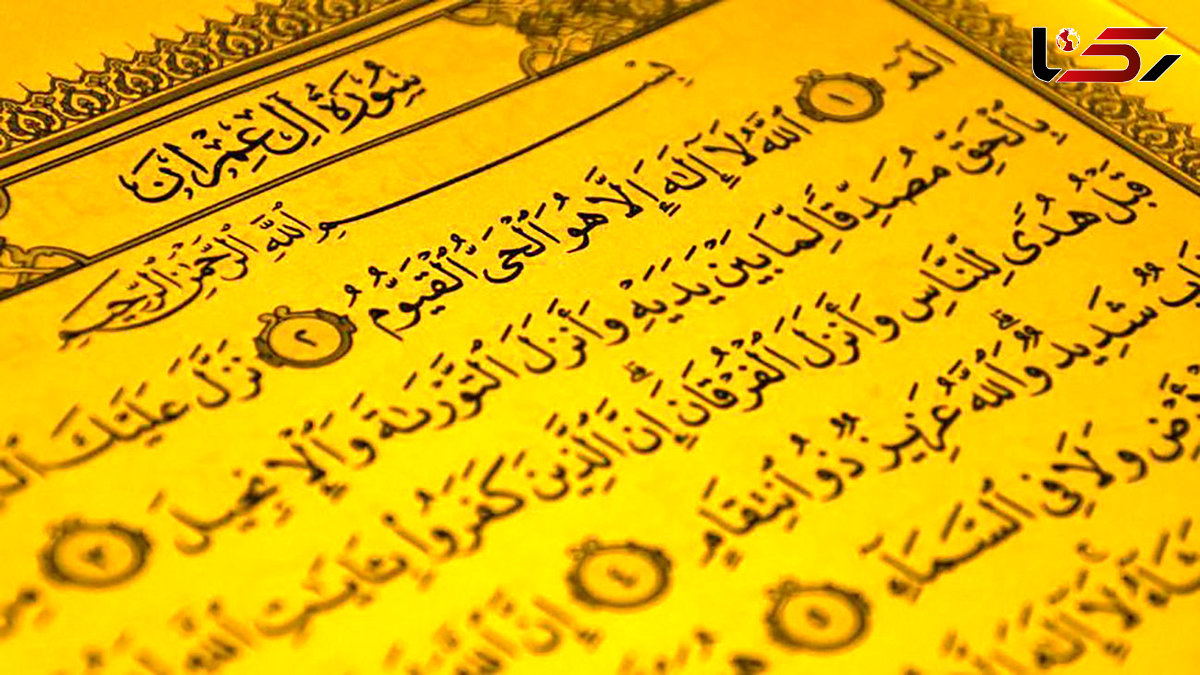 رکنا
سُورَةُ آلِ عِمْرَانَ
بِسْمِ ٱللَّهِ ٱلرَّحْمَٰنِ ٱلرَّحِيمِ
الٓمٓ ١ ٱللَّهُ لَآ إِلَٰهَ إِلَّا هُوَ ٱلْحَىُّ ٱلْقَيُّومُ ٢ نَزَّلَ عَلَيْكَ
بِٱلْحَقِّ مُصَدِّقًا لِّمَا بَيْنَ يَدَيْهِ وَأَنزَلَ ٱلتَّوْرَىٰةَ وَٱلْإِنجِيلَ ٣ مِن
قَبْلُ هُدًى لِّلنَّاسِ وَأَنزَلَ ٱلْفُرْقَانَ ۗ إِنَّ ٱلَّذِينَ كَفَرُوا۟ بِـَٔايَٰتِ ٱللَّهِ
شَدِيدٌ ۗ وَٱللَّهُ عَزِيزٌ ذُو ٱنتِقَامٍ ٤ إِنَّ ٱللَّهَ
وَلَا فِى ٱلسَّمَآءِ ٥
لَآ إِلَٰهَ